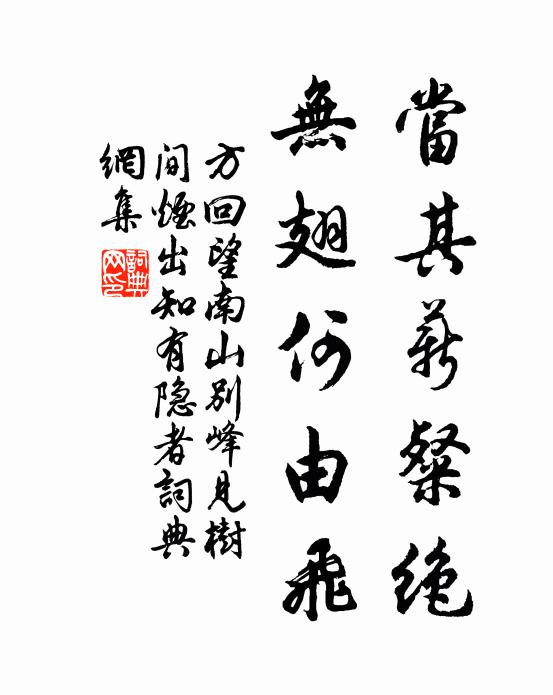 當其薪粲絶
無翅何由飛
方回望南山別峰見樹
间煙出知有隐者詞典
網集
詞典
网印